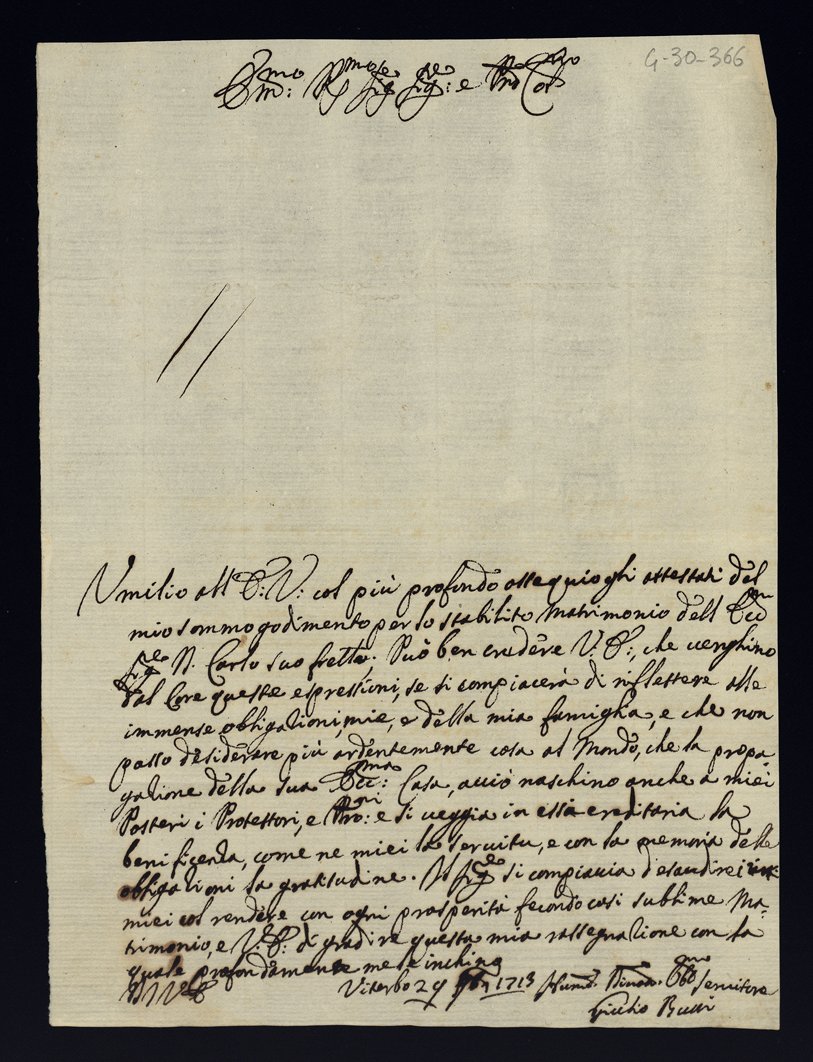 G-30-366
Em:mo Rmo Sig.re Sig:re e Pn Col.mo
Umilio all E: V: col più profondo ossequio gli attestati del
mio sommo godimento per lo stabilito Matrimonio dell Ecc.mo
Sig.re D. Carlo suo fretto. Può ben credere V: E:, che venghino
dal Core queste espressioni, se si compiacerà di riflettere alle
immense obligationi mie, e della mia famiglia, e che non
posso desiderare più ardentemente cosa al Mondo, che la propa
gatione della sua Ecc:ma Casa, acciò naschino anche a miei
Posteri i Protettori, e Pro:ni e si veggia in essa ereditaria la
beneficenza, come ne miei la servitu, e con la memoria delle
obligationi la gratitudine. Il Sig.re si compiaccia d'esaudire i
miei col rendere con ogni prosperità fecondo cosi sublime Ma-
trimonio, e V: E: di gradire questa mia rassegnatione con la
quale profondamente me le inchino
D V E Viterbo 29 1713 Hum. Divot. Obb.mo servitore
Giulio Bussi